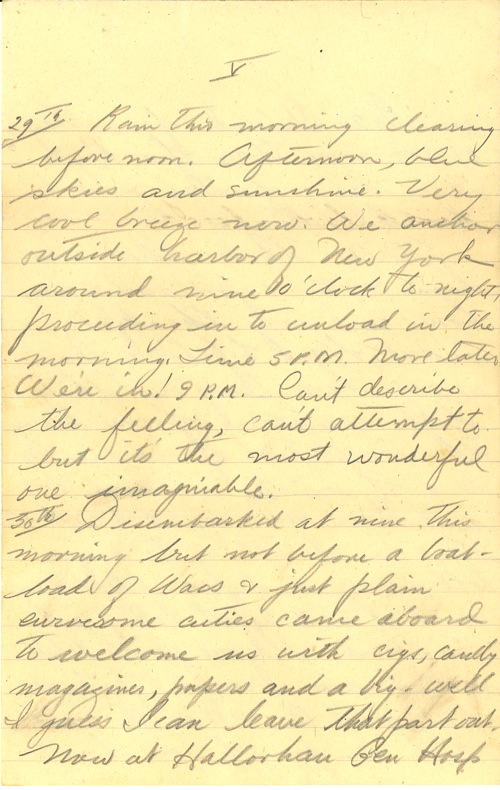 V
29th Rain this morning clearing
before noon. Afternoon, blue
skies and sunshine. Very
cool breeze now. We anchor
outside harbor of New York
around nine o'clock to-night,
proceeding in to unload in the
morning. Time 5 P.M. More later
We're in! 9 P.M. Can't describe
the feeling, can't attempt to
but it's the most wonderful
one imaginable.
30th Disembarked at nine this
morning but not before a boat-
load of Wacs & just plain
curvesome cuties came aboard
to welcome us with cigs, candy
magazines, papers and a big - well
I guess I can leave that part out.
Now at Hallorhan Gen Hosp